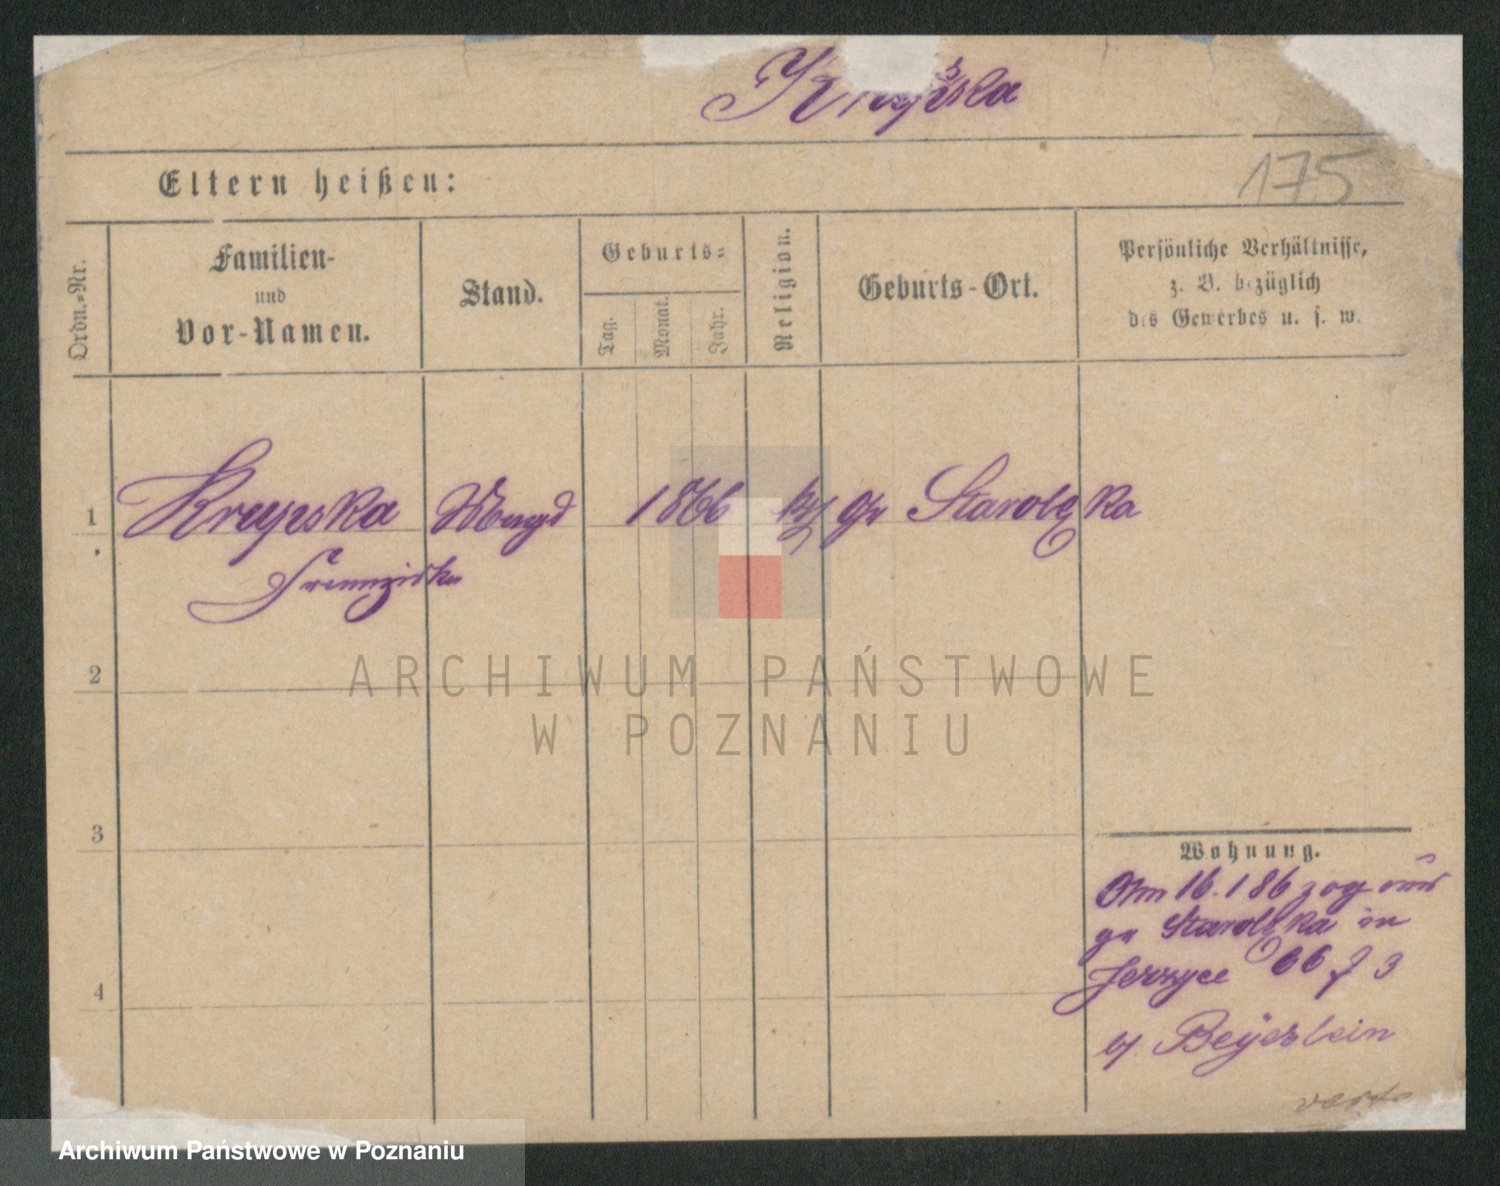 175
Eltern heißen:
Ordn.-Nr.
Familien-
und
Vor-Namen.
Stand.
Geburts-
Tag.
Monat.
Jahr.
Religion.
Geburts-Ort.
Persönliche Verhältnisse,
z. B. bezüglich
des Gewerbes u. s. w.
1 Magd 1866 Gr Starolęka
2
ARCHIWUM PAŃSTWOWE
W POZNANIU
3
Wohnung.
16. 1 86 zog aus
Starolęka in
4
Jerzyce 66 3
Beyerlein
verte
Archiwum Państwowe w Poznaniu